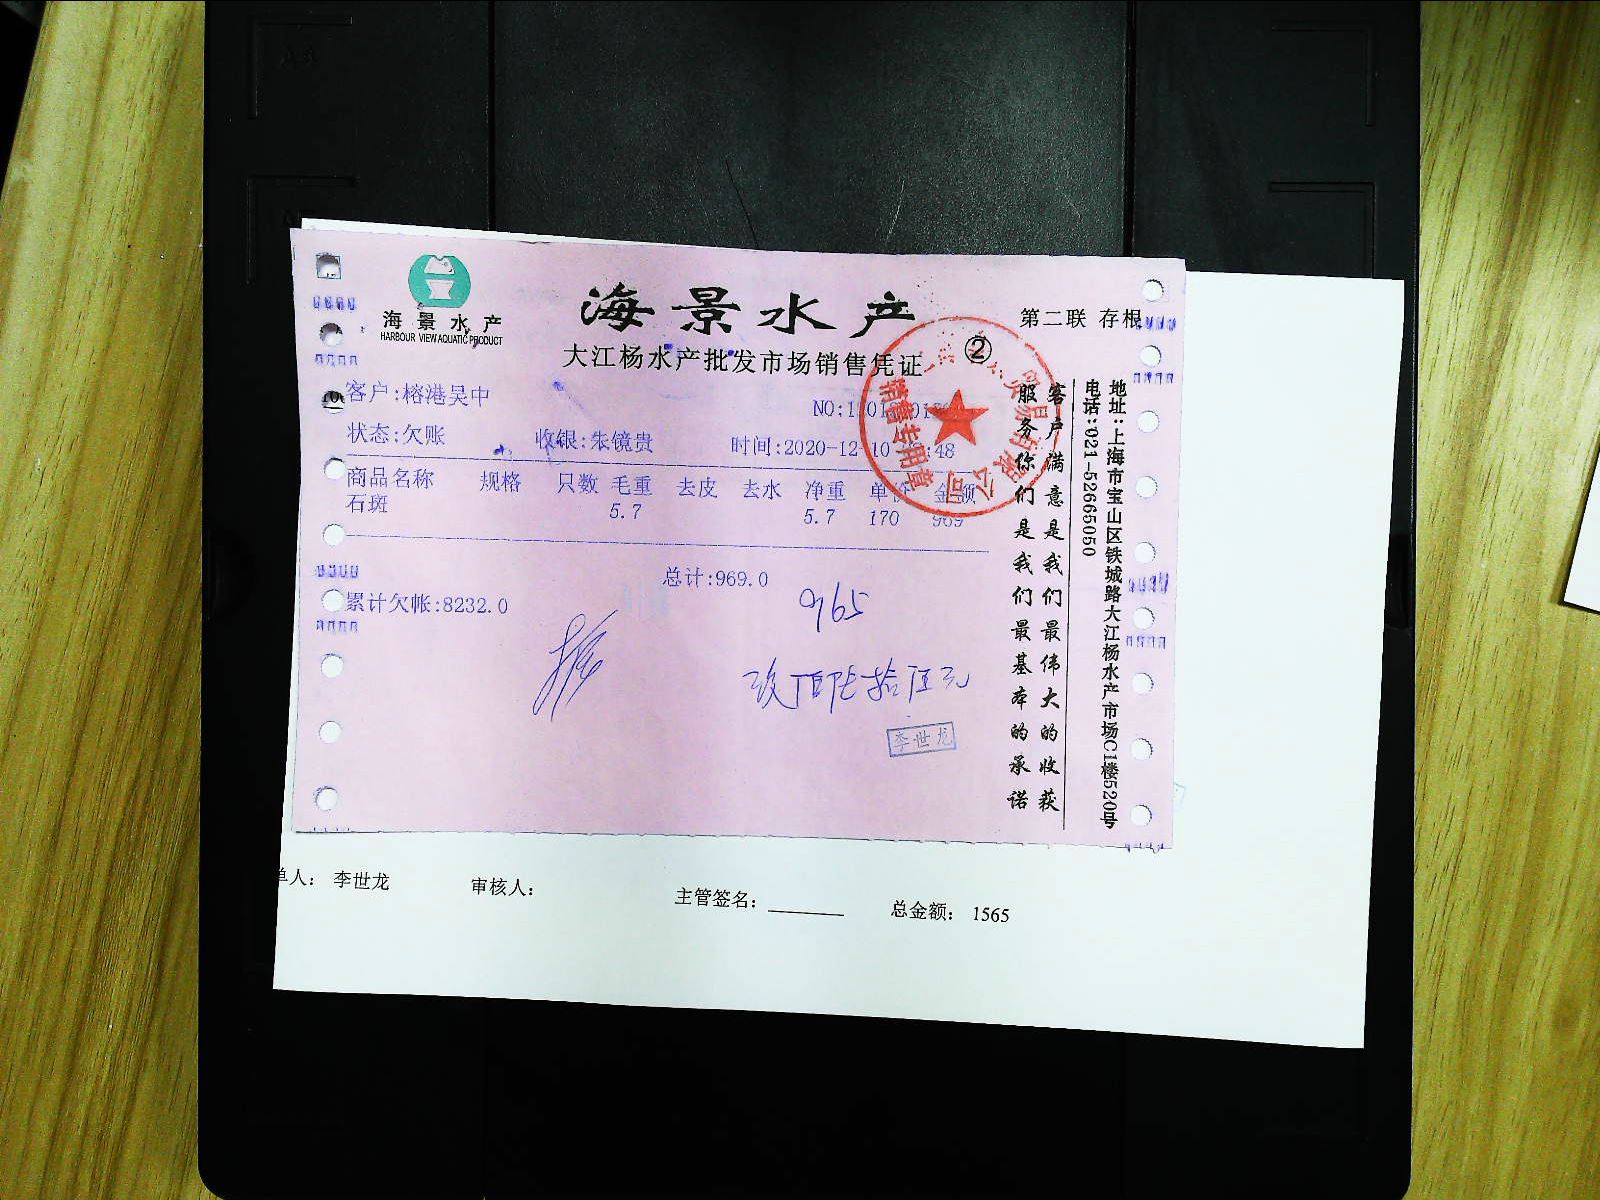 海景水产
HARBOUR VIEW AQUATIC PRODUCT
海景水产
大江杨水产批发市场销售凭证
第二联 存根
②
客户:榕港吴中
NO:
状态:欠账 收银:朱镜贵 时间:2020-12-10 :48
商品名称 规格 只数 毛重 去皮 去水 净重 单价 金额
石斑 5.7 5.7 170 969
总计:969.0
累计欠帐:8232.0
965
玖佰陆拾伍元
李世龙
销售专用章
客户满意是我们最伟大的收获
服务你们是我们最基本的承诺
地址:上海市宝山区铁城路大江杨水产市场C1楼520号
电话:021-52665050
单人: 李世龙 审核人: 主管签名: 总金额: 1565